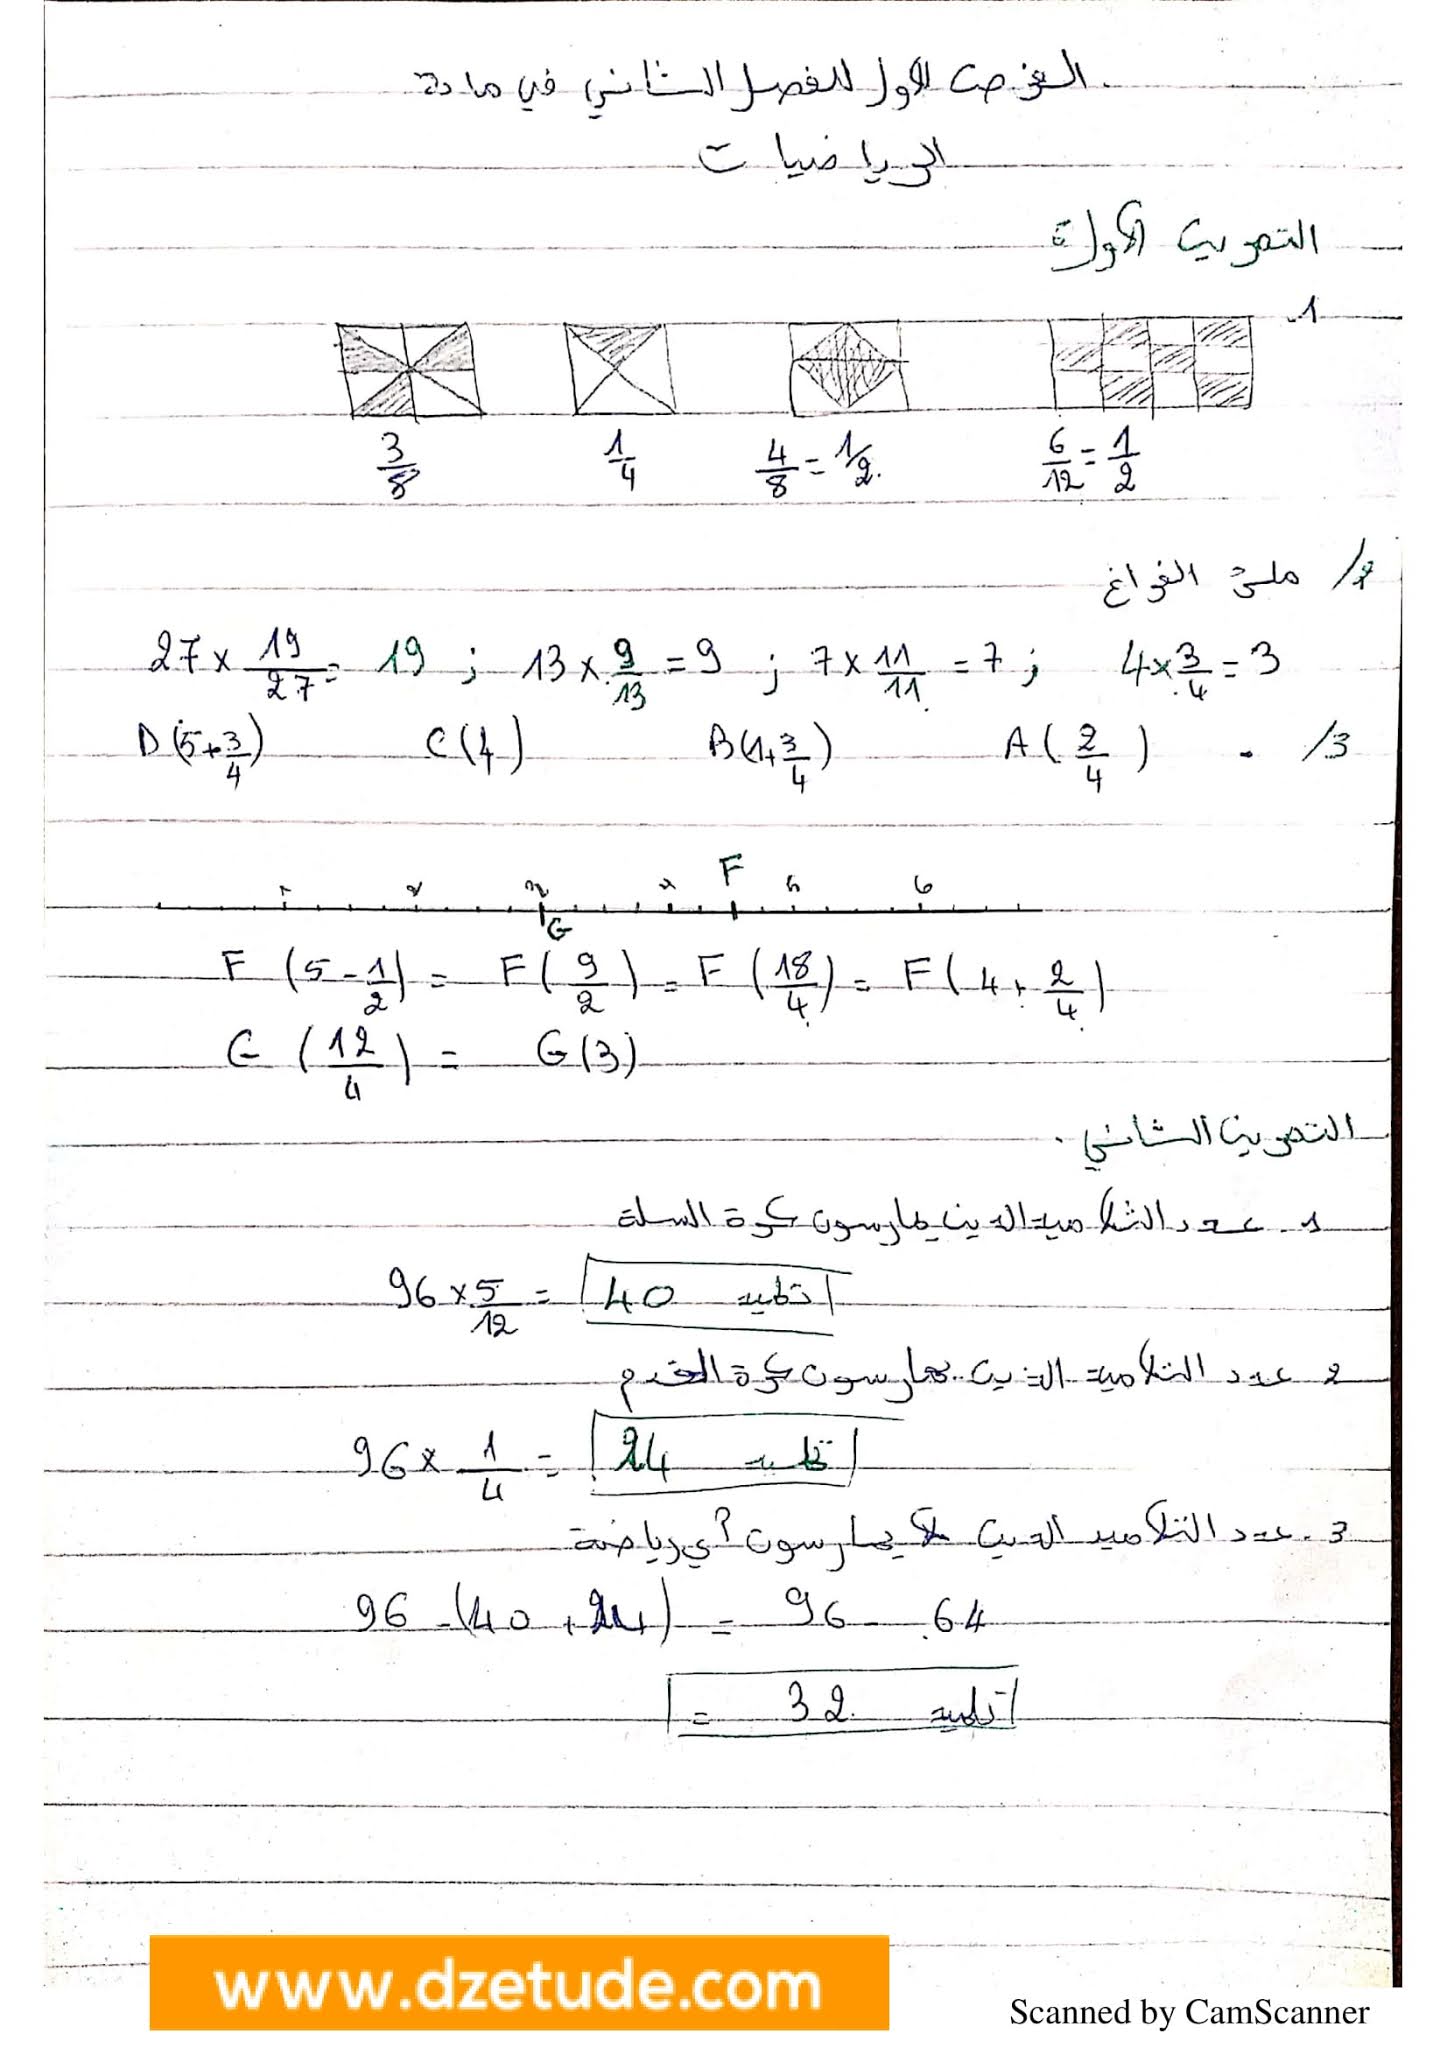 الفرض الأول للفصل الثاني في مادة
الرياضيات
التمرين الأول:
1.
3/8 1/4 4/8 = 1/2 6/12 = 1/2
2/ ملئ الفراغ
27 × 19/27 = 19 ; 13 × 9/13 = 9 ; 7 × 11/11 = 7 ; 4 × 3/4 = 3
3/ A(2/4) B(1+3/4) C(4) D(5+3/4)
F
1 2 3 4 5 6
G
F(5 - 1/2) = F(9/2) = F(18/4) = F(4 + 2/4)
G(12/4) = G(3)
التمرين الثاني
1. عدد التلاميذ الذين يمارسون كرة السلة
96 × 5/12 = 40 تلميذ
2 عدد التلاميذ الذين يمارسون كرة القدم
96 × 1/4 = 24 تلميذ
3. عدد التلاميذ الذين لا يمارسون أي رياضة
96 - (40 + 24) = 96 - 64
= 32 تلميذ
www.dzetude.com
Scanned by CamScanner